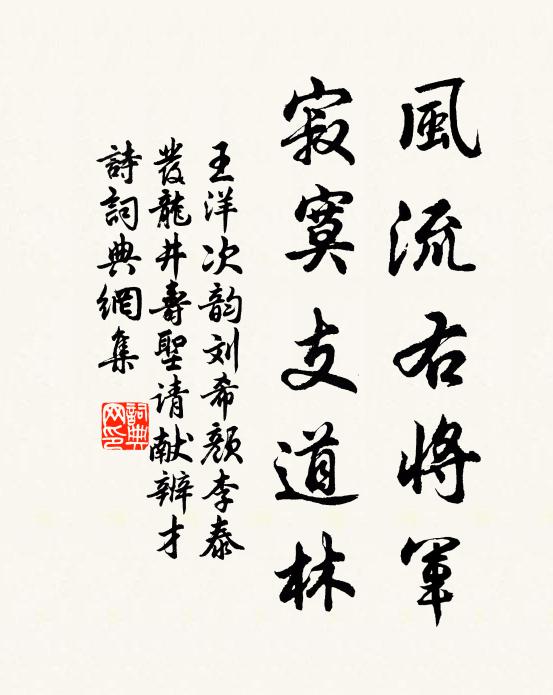 風流右將軍
寂寞支道林
王洋次韵刘希顏李泰
發龍井壽聖请献辨才
詩詞典網集
詞典
网印